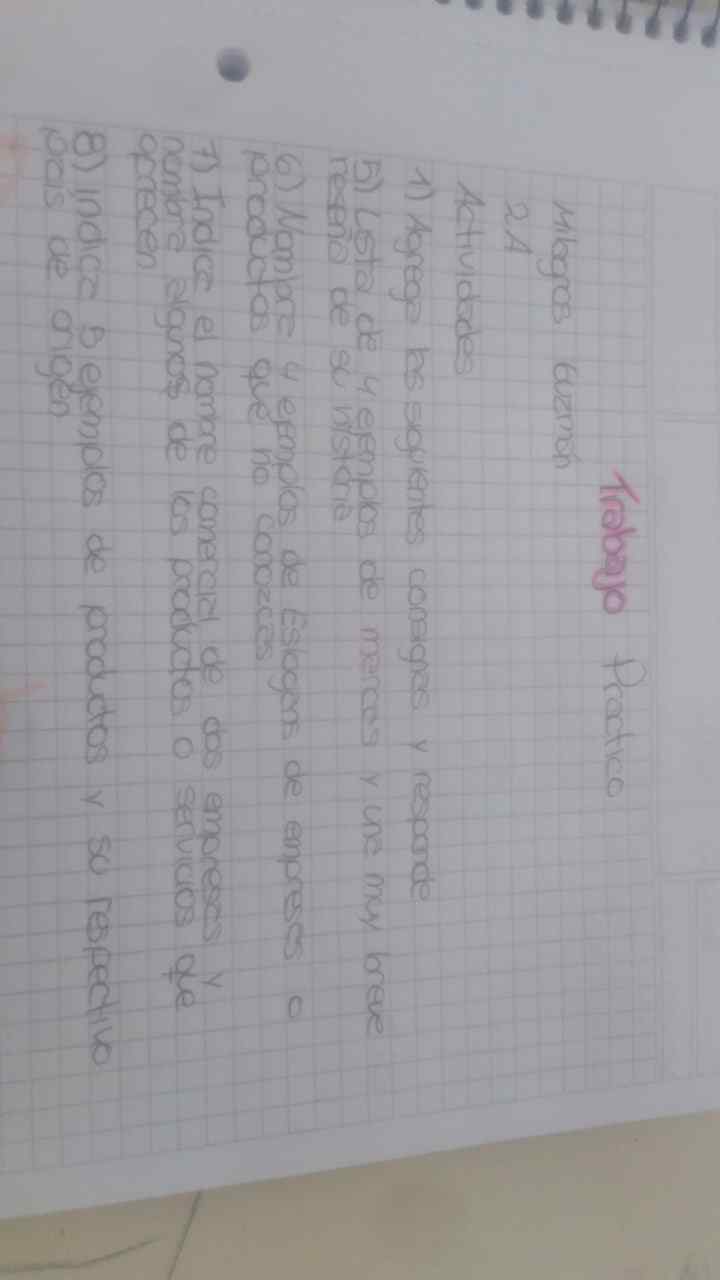 Trabajo Practico
Milagros Guzmán
2A
Actividades
1) Agrega las siguientes consignas y responde
5) Lista de 4 ejemplos de marcas y une muy breve
reseña de su historia
6) Nombre 4 ejemplos de Eslogans de empresas o
productos que no conozcas
7) Indica el nombre comercial de dos empresas y
nombra algunos de los productos o servicios que
ofrecen
8) Indica 5 ejemplos de productos y su respectivo
país de origen